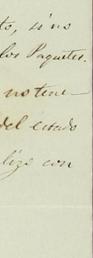 to, si no
los Paquetes.
no tene-
del estado
lize con